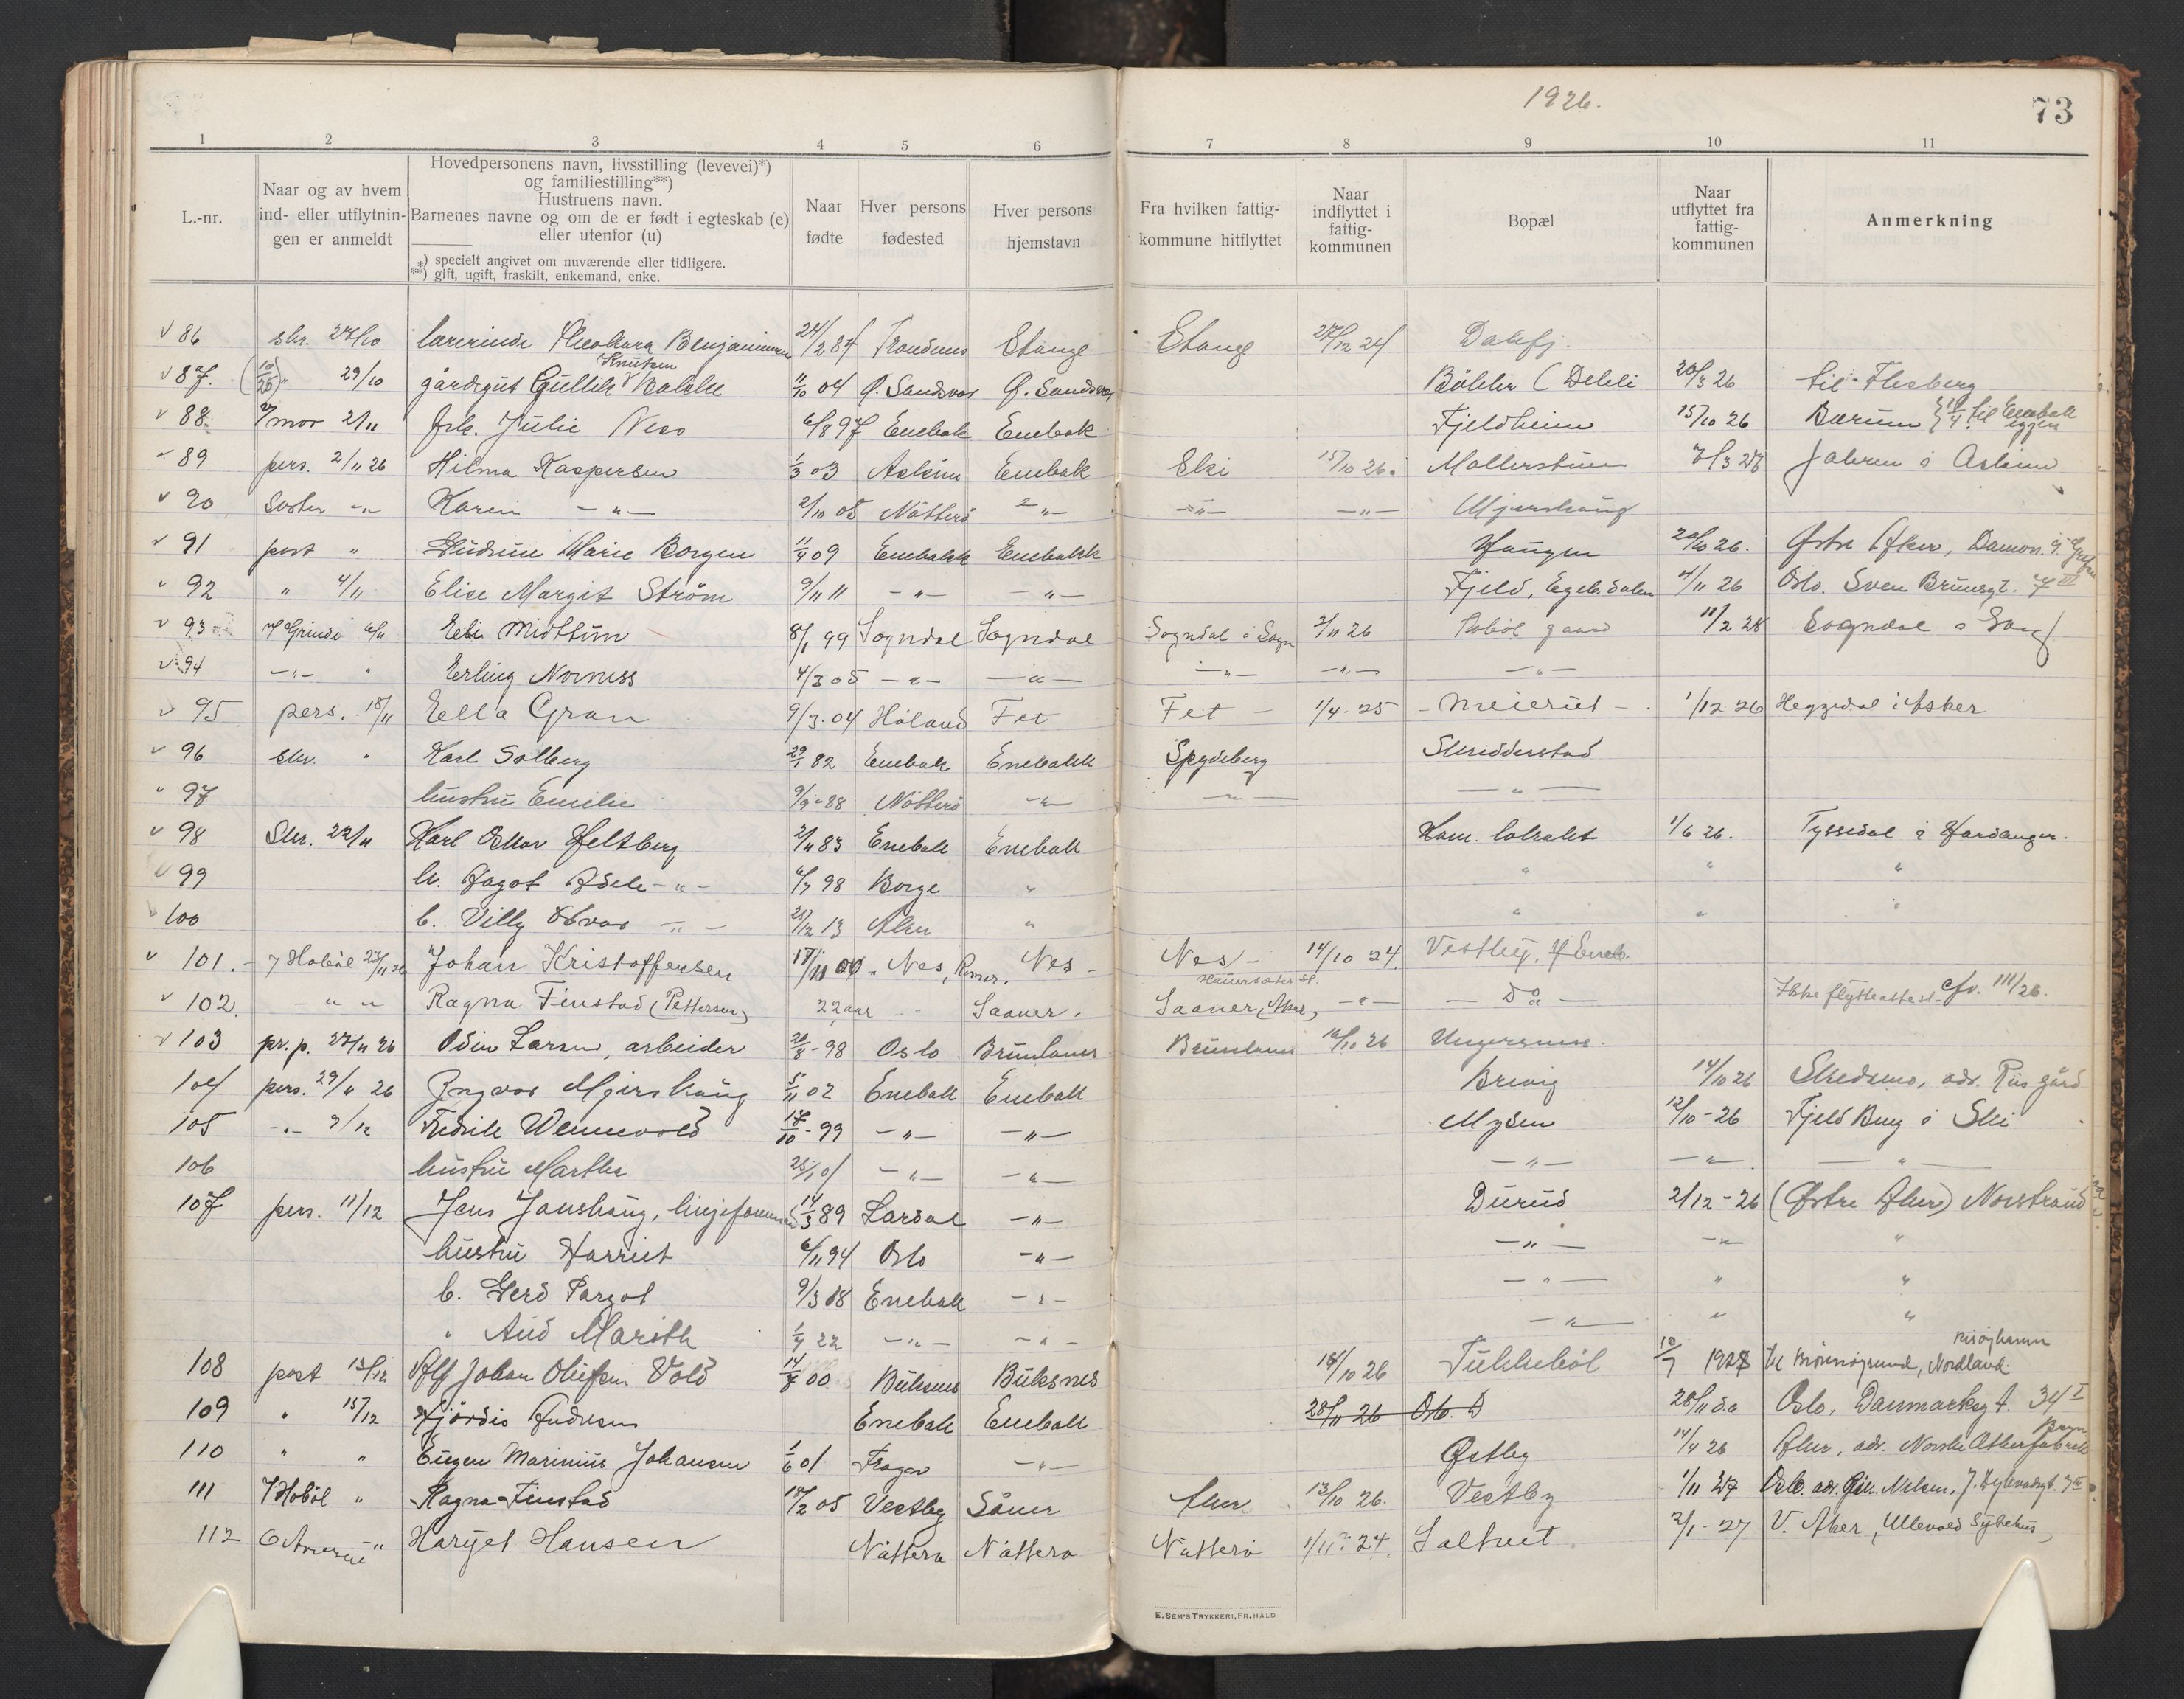 1926.
73
1 2 3 4 5 6 7 8 9 10 11
L.-nr.
Naar og av hvem
ind- eller utflytnin-
gen er anmeldt
Hovedpersonens navn, livsstilling (levevei)*)
og familiestilling**)
Hustruens navn.
Barnenes navne og om de er født i egteskab (e)
eller utenfor (u)
*) specielt angivet om nuværende eller tidligere.
**) gift, ugift, fraskilt, enkemand, enke.
Naar
fødte
Hver persons
fødested
Hver persons
hjemstavn
Fra hvilken fattig-
kommune hitflyttet
Naar
indflyttet i
fattig-
kommunen
Bopæl
Naar
utflyttet fra
fattig-
kommunen
Anmerkning
86 skr. 27/10 lærerinde Benjaminsen 24/2 87 Stange Stange 27/12 24 Dalefj.
Knutsen
87. (10/25) " 29/10 gårdsgut Gullik Bakke 11/10 04 Ø. Sandsvær Ø. Sandsvær Böhler (Dehli 20/3 26 til Flesberg
88. mor 2/11 frk. Julie Ness 6/8 97 Enebak Enebak Fjeldheim 15/10 26 Bærum
89 pers. 2/11 26 Hilma Kaspersen 1/3 03 Askim Enebak Ski 15/10 26. Mollerstuen 7/3 27 Askim
90 Søster -"- Karin -"- 2/10 05 Nötterö -"- -"- -"- Mjerskaug
91 post " Gudrun Marie Borgen 11/4 09 Enebakk Enebakk Haugen 20/10 26. Østre Aker,
92 " 4/11 Elise Margit Ström 9/11 11 -"- -"- Fjeld, Egeb.dalen 4/11 26 Oslo. Sven Brunsgt. 7 III
93 Grinde 6/11 Eli Midttun 8/1 99 Sogndal Sogndal Sogndal i Sogn 2/11 26 gaard 11/2 28 Sogndal i Sogn
94 -"- " Erling Nornes 4/3 05 -"- -"- -"- -"- -"-
95 pers. 18/11 Ella Gran 9/3-04 Höland Fet Fet - 1/4-25 - Meieriet - 1/12 26 Heggedal i Asker
96 skr. " Karl Solberg 29/1 82 Enebak Enebakk Spydeberg Skredderstad
97 hustru Emilie 9/9-88 Nötterö -"- -"- -"-
98 Skr. 22/11 Karl Oskar Heltberg 2/11 83 Enebak Enebak Kom. lokalet 1/6 26. Tyssedal i Hardanger.
99 h. Dagot -"- 98 Borge " " " "
100 b. Villy -"- 25/12 13 Aker " " " "
101. Hobøl 23/11 26 Johan Kristoffersen 18/11 00. Nes, Romer. Nes - Nes - 14/10 24. Vestby,
102. -"- Ragna Finstad (Pettersen) 22 aar Saaner. Saaner, (Aker) -"- - Do - Ikke flytteattest. cfr. 111/26.
103 pr. p. 27/11 26 Odin Larsen, arbeider 20/8-98 Oslo Brunlanes Brunlanes 16/10 26 Ungersness.
104 pers. 29/11 26 Ingvar Mjerskaug 5/11 02 Enebak Enebak Brevig 14/10 26 Skedsmo, adr. Riis gård
105 -"- 7/12 Fredrik Wennevold 18/10-99 -"- -"- Mysen 12/10-26 Fjeld Brug i Ski
106 hustru Marthe 25/1 01 -"- -"- -"- -"- -"-
107 pers. 11/12 Jens Janshaug, linjeformann 14/3 89 Lardal -"- Durud 2/12-26 (Østre Aker) Norstrand
hustru Harriet 6/11 94 Oslo -"- -"- -"- "
b. Gerd Margot 9/3 18 Enebak -"- -"- " "
" Aud Marith 1/4 22 -"- -"- -"- " "
108 post 13/12 Alf Johan Olufsen Vold 14/8 00 Buksnes Buksnes 18/10 26 Tukkebøl 10/7 1927 til Brønnøysund, Nordland.
Risøyhamn
109 " 15/12 Hjördis Andresen Enebak Enebak 28/11 26 Oslo. D 28/11 d.a Oslo, Danmarksgt. 34 I
110 " " Eugen Marinius Johansen 1/6 01 Frogn -"- Østby 14/4 26 Aker, adr. Norske
111 Hobøl " Ragna Finstad 18/2 05 Vestby Såner Aker 13/10 26. Vestby 1/11 27 Oslo. adr.
112 " Harijet Hansen Nøtterø Nøtterø Nøtterø 1/11-24. Saltvet 2/1-27 V. Aker, Ullevold Sykehus
E. SEM'S TRYKKERI, FR.HALD